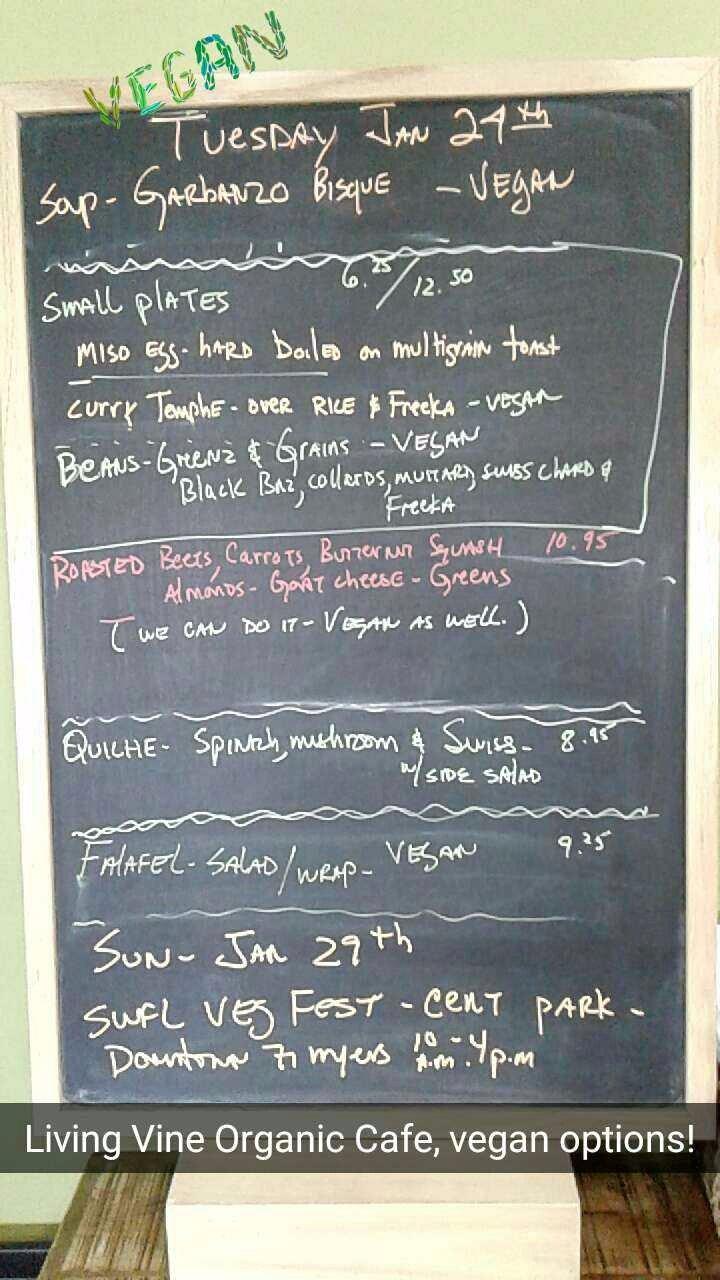 VEGAN
Tuesday Jan 24th
Soup - Garbanzo Bisque - Vegan
6.25/12.50
Small plates
Miso Egg - hard boiled on multigrain toast
Curry Temphe - over Rice & Freeka - Vegan
Beans - Greenz & Grains - Vegan
Black Bnz, collards, mustard, swiss chard &
Freeka
Roasted Beets, Carrots, Butternut Squash 10.95
Almonds - Goat cheese - Greens
(we can do it - Vegan as well.)
Quiche - Spinach, mushroom & Swiss - 8.95
w/ side salad
Falafel - Salad/wrap - Vegan 9.25
Sun - Jan 29th
SWFL Veg Fest - Cent Park -
Downtown Ft myers 10 a.m. - 4 p.m
Living Vine Organic Cafe, vegan options!